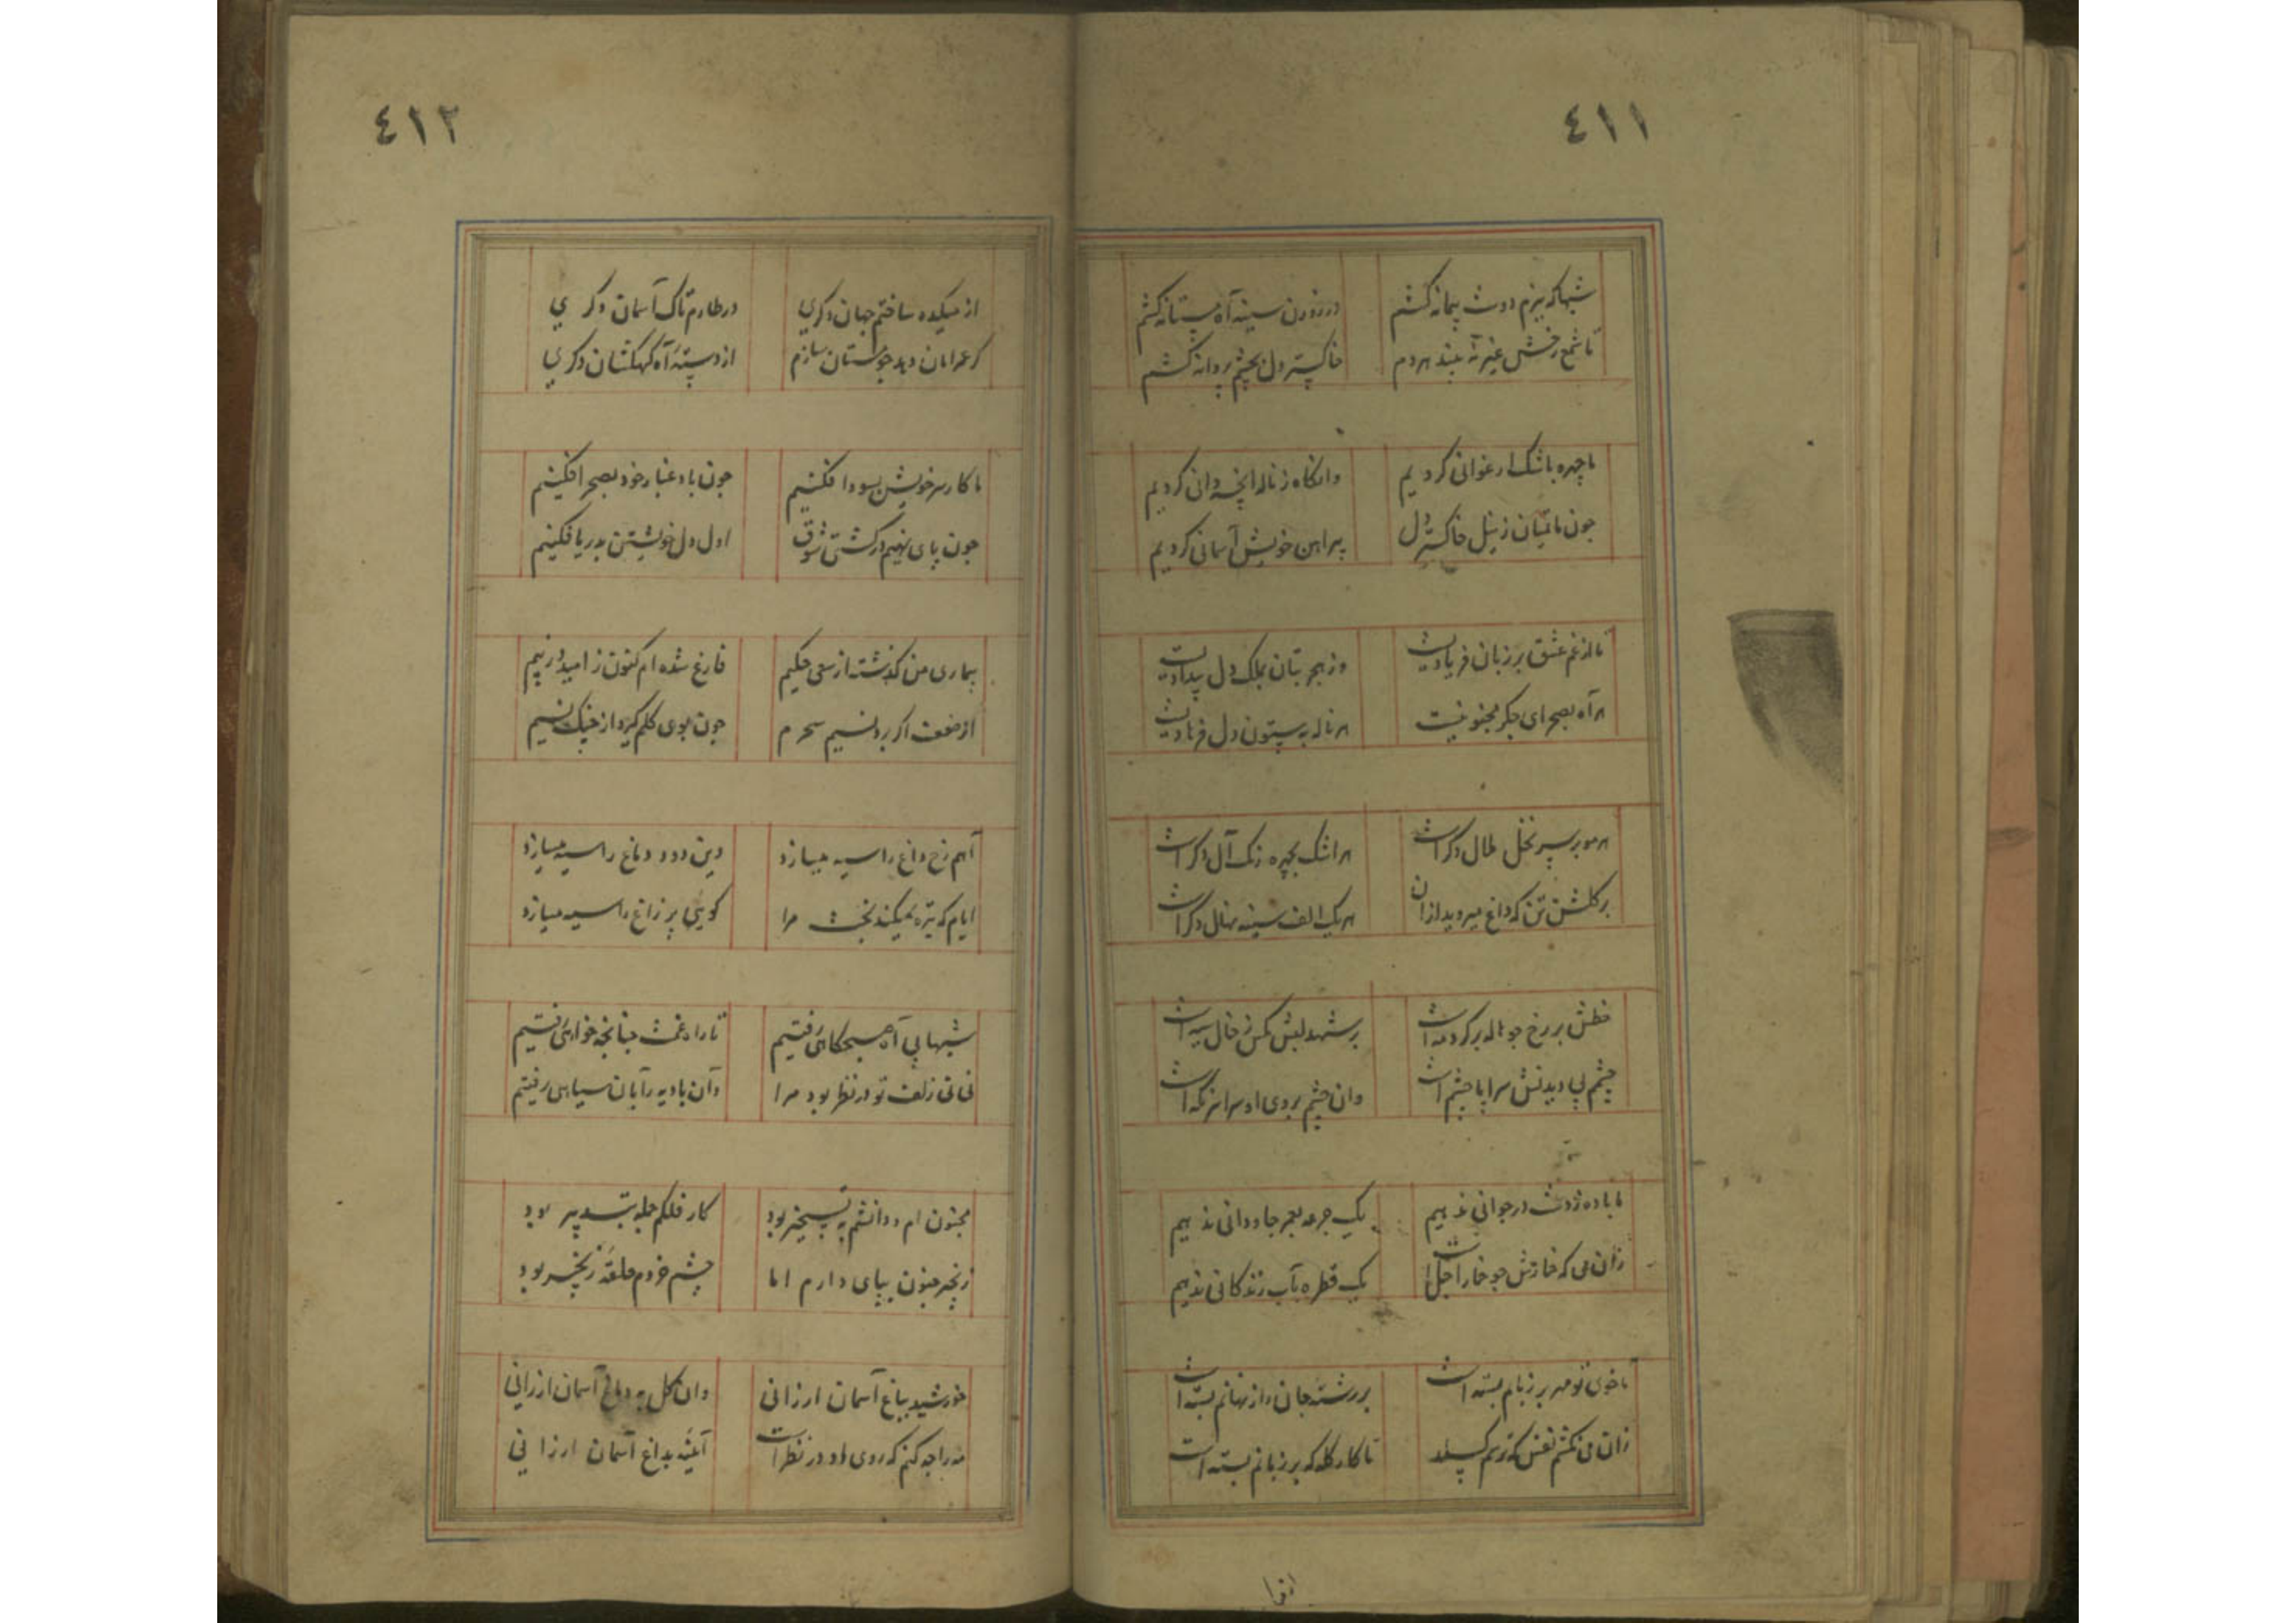 ٤١١
شبها که ببزم دوست پیمانه کشم
در درون سینه آه مستانه کشم
تا شمع رخش غیر نه بیند هر دم
خاکستر دل بچشم پروانه کشم
ما چهره باشک ارغوانی کردیم
وانکاه ز ناله آنچه دانی کردیم
چون ماتمیان ز نیل خاکستر دل
پیراهن خویش آسمانی کردیم
ما را ز غم عشق بر زبان فریادیست
وز هجر بتان بملک دل بیدادیست
هر آه بصحرای جکر مجنونیست
هر ناله به بیستون دل فرهادیست
هر مو بر سر نخل ملال دکر است
هر اشک بچهره رنک آل دکر است
بر کلشن تن که داغ میروید ازان
هر یک الف سینه نهال دکر است
خطش بر رخ چو هاله بر کرد مه است
بر شهد لبش مکس ز خال سیه است
چشم پی دیدنش سراپا چشم است
وان چشم بروی او سراسر نکه است
ما باده ز دست در جوانی ندهیم
یک جرعه بعمر جاودانی ندهیم
زان می که خارش چو خمار اجل است
یک قطره بآب زندکانی ندهیم
تا خوی تو مهر بر زبانم بسته است
بر رشته جان راز نهانم بسته است
زان می نکشم نفس که ترسم کسلد
تا کار کله که بر زبانم بسته است
٤١٢
از میکده ساختم جهان دکری
در طارم تاک آسمان دکری
کر عمر امان دهد چوستان سازم
از دسته آه کهکشان دکری
ما کار سر خویش بسودا فکنیم
چون باد غبار خود بصحرا فکنیم
چون پای نهیم در کشتی شوق
اول دل خویشتن بدریا فکنیم
بیماری من کذشته از سعی حکیم
فارغ شده ام کنون ز امید و ز بیم
از ضعف اکر برد نسیم سحرم
چون بوی کلم کیرد از چنک نسیم
آهم رخ داغ را سیه میسازد
وین دود دماغ را سیه میسازد
ایام که تیره میکند بخت مرا
کویی پر زاغ را سیه میسازد
شبها پی آه صبحکاهی رفتیم
تا راه غمت چنانچه خواهی رفتیم
نی نی زلف تو در نظر بود مرا
وان بادیه را بآن سیاهی رفتیم
مجنون ام و دانشم به تسخیر بود
کار فلکم جمله بتدبیر بود
زنجیر جنون بپای دارم اما
چشم خردم حلقه زنجیر بود
خورشید بباغ آسمان ارزانی
وان کل به دماغ آسمان ارزانی
مه را چه کنم که روی او در نظر است
آینه بداغ آسمان ارزانی